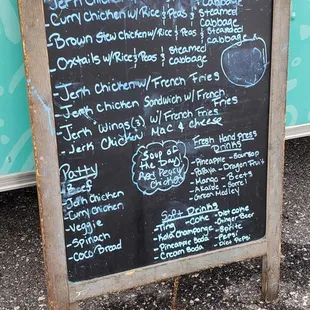 Jerk Chicken
Curry Chicken w/ Rice & Peas & Steamed Cabbage
- Brown stew chicken w/ Rice & Peas & Steamed cabbage
- Oxtails w/ Rice & Peas & Steamed cabbage
Jerk Chicken w/ French Fries
Jerk Chicken Sandwich w/ French Fries
Jerk Wings (3) w/ French Fries
Jerk Chicken Mac & Cheese
Soup of the Day!
Chicken
Fresh Hand Press Drinks
- Pineapple - Soursop
- Papaya - Dragon Fruit
- Mango - Beets
- Sorrel
- Green Medley
Patty
- Beef
- Jerk Chicken
- Curry Chicken
- Veggie
- Spinach
- Coco Bread
Soft Drinks
- Ting - Coke - Diet Coke
- Kola Champagne - Ginger Beer
- Pineapple Soda - Sprite
- Cream Soda - Pepsi
- Diet Pepsi